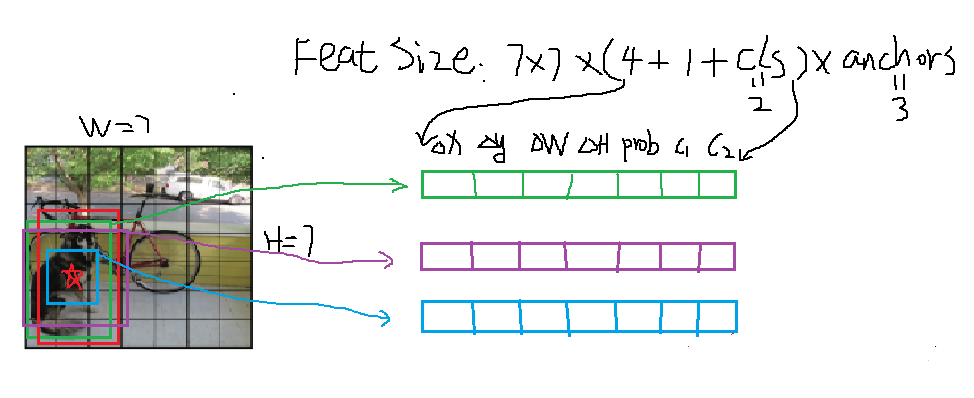 Feat Size: 7x7 x(4+1+cls)x anchors
=
2
=
3
W=7
Δx Δy ΔW ΔH prob C1 C2
H=7